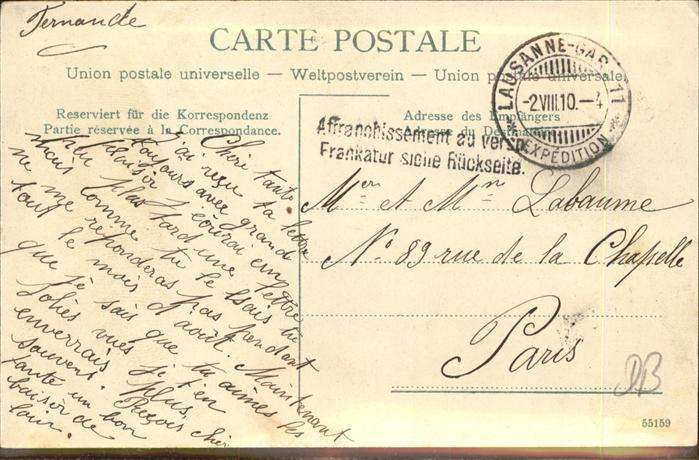 Fernande
CARTE POSTALE
Union postale universelle – Weltpostverein – Union postale universale
Reserviert für die Korrespondenz
Partie réservée à la Correspondance.
Adresse des Empfängers
Adresse du Dest
LAUSANNE-GARE 11
-2.VIII.10.-4
EXPÉDITION
Affranchissement au verso
Frankatur siehe Rückseite.
Chèri tante
J'ai reçu ta lettre
toujours avec grand
plaisir j'ècrirai une
plus tard une lettre
mais comme tu le sais tu
ne me reponderas pas pendant
tout le mois d'août. Maintenant
que je sais que tu aimes les
jolies vues je t'en
enverrais plus
souvent. Reçois chèri
tante un bon
baisèr de
Lour.
Mer et Mm Labaume
N° 89 rue de la Chapelle
Paris
DB
55159